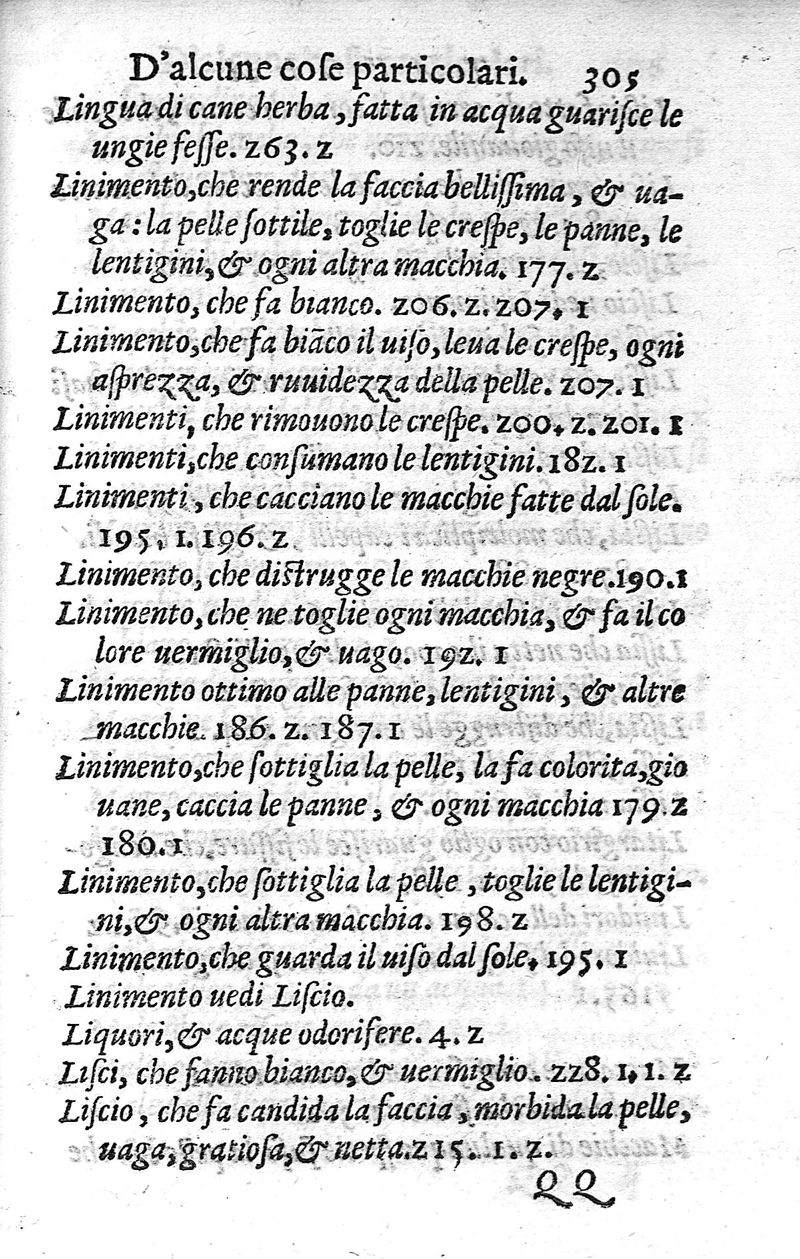 D'alcune coſe particolari. 305
Lingua di cane herba, fatta in acqua guariſce le
ungie feſſe. 263. 2
Linimento, che rende la faccia belliſſima, & ua-
ga: la pelle ſottile, toglie le creſpe, le panne, le
lentigini, & ogni altra macchia. 177. 2
Linimento, che fa bianco. 206. 2. 207. 1
Linimento, che fa biāco il uiſo, leua le creſpe, ogni
aſprezza, & ruuidezza della pelle. 207. 1
Linimenti, che rimouono le creſpe. 200. 2. 201. 1
Linimenti, che conſumano le lentigini. 182. 1
Linimenti, che cacciano le macchie fatte dal ſole.
195. 1. 196. 2
Linimento, che diſtrugge le macchie negre. 190. 1
Linimento, che ne toglie ogni macchia, & fa il co
lore uermiglio, & uago. 192. 1
Linimento ottimo alle panne, lentigini, & altre
macchie. 186. 2. 187. 1
Linimento, che ſottiglia la pelle, la fa colorita, gio
uane, caccia le panne, & ogni macchia 179. 2
180. 1
Linimento, che ſottiglia la pelle, toglie le lentigi-
ni, & ogni altra macchia. 198. 2
Linimento, che guarda il uiſo dal ſole. 195. 1
Linimento uedi Liſcio.
Liquori, & acque odorifere. 4. 2
Liſci, che fanno bianco, & uermiglio. 228. 1, 1. 2
Liſcio, che fa candida la faccia, morbida la pelle,
uaga, gratioſa, & netta. 215. 1. 2.
QQ